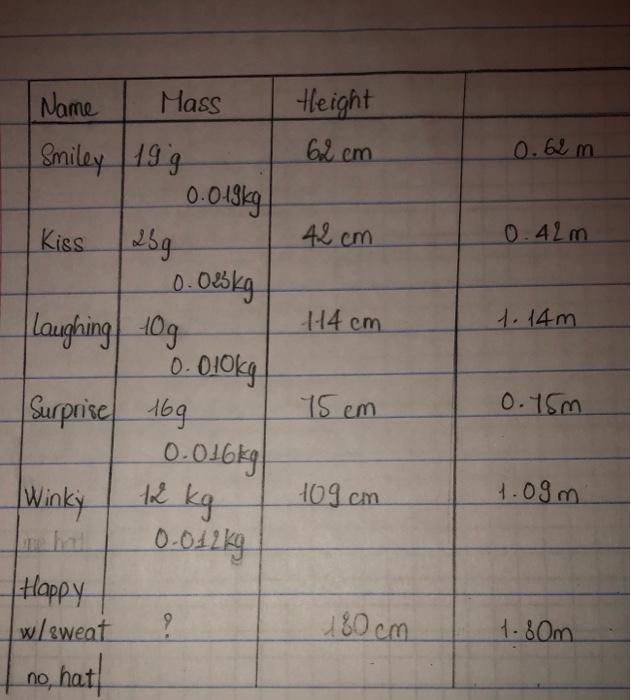 Name Mass Height
Smiley 19 g 62 cm 0.62 m
0.019kg
Kiss 23g 42 cm 0.42m
0.023kg
Laughing 10g 114 cm 1.14m
0.010kg
Surprise 16g 75 cm 0.75m
0.016kg
Winky 12 kg 109 cm 1.09m
0.012kg
Happy
w/sweat ? 180 cm 1.80m
no, hat